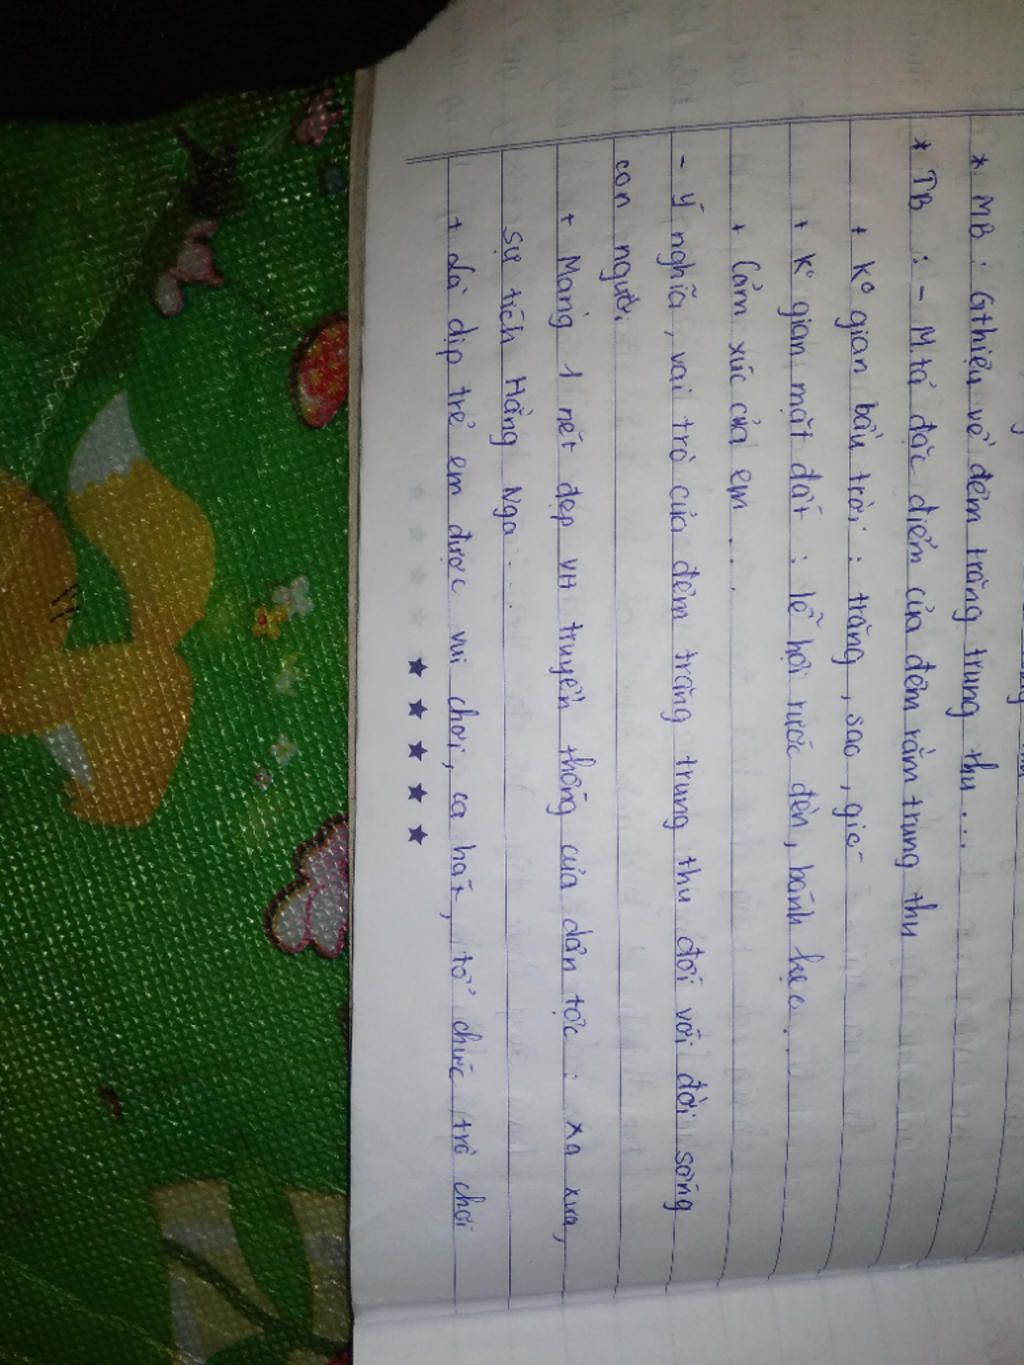 * MB : Gthiệu về đêm trăng trung thu...
* TB : - M.tả đặc điểm của đêm rằm trung thu
+ Kº gian bầu trời : trăng, sao, gió
+ Kº gian mặt đất : lễ hội rước đèn, bánh kẹo...
+ Cảm xúc của em...
- Ý nghĩa, vai trò của đêm trăng trung thu đối với đời sống
con người
+ Mang 1 nét đẹp VH truyền thống của dân tộc : xa xưa,
sự tích Hằng Nga...
+ Là dịp trẻ em được vui chơi, ca hát, tổ chức trò chơi